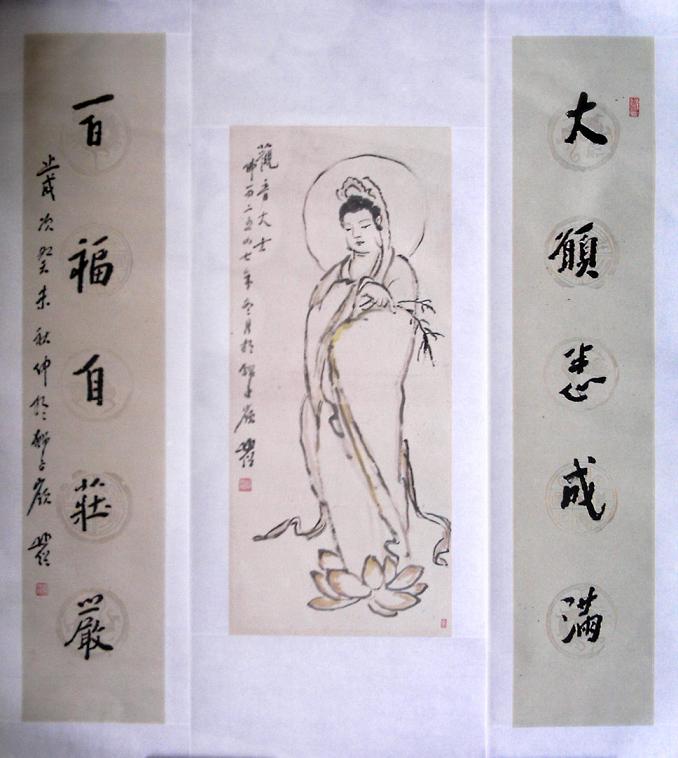 大願悉成滿
觀音大士
二五四七年冬月於
百福自莊嚴
歲次癸未秋仲於